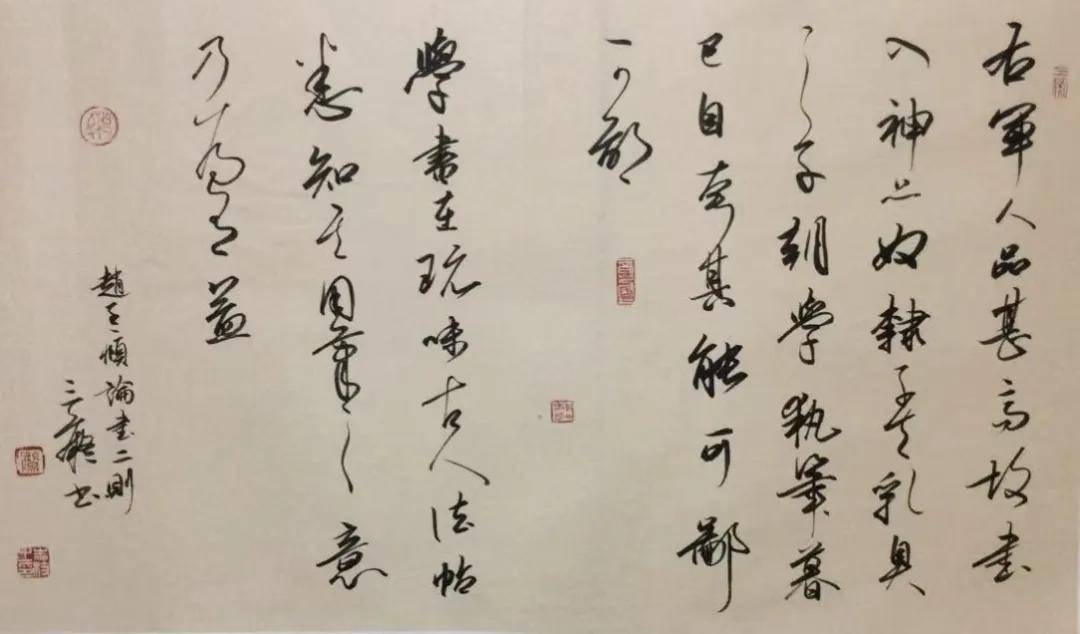 右軍人品甚高故書
入神品奴隸小夫乳臭
之子朝學執筆暮
已自夸其能可鄙
可鄙
學書在玩味古人法帖
悉知其用筆之意
乃為有益
趙孟頫論書二則
書